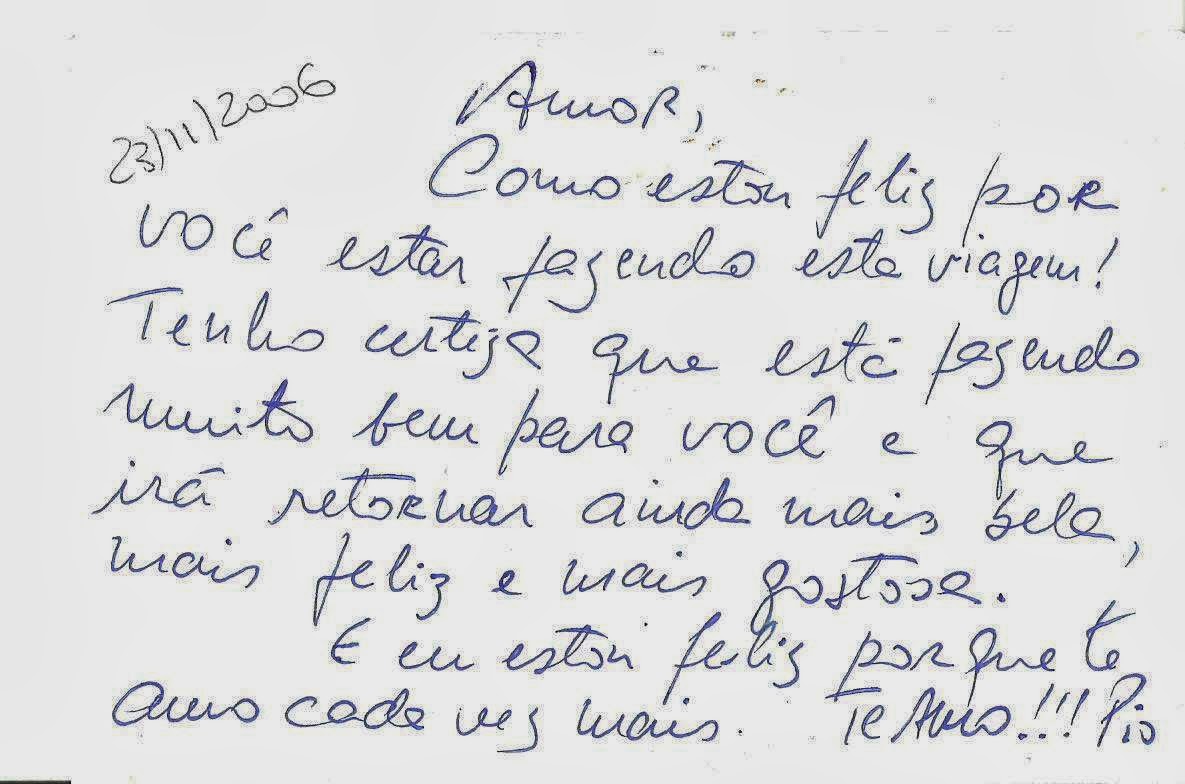 23/11/2006
Amor,
Como estou feliz por
você estar fazendo esta viagem!
Tenho certeza que está fazendo
muito bem para você e que
irá retornar ainda mais bela,
mais feliz e mais gostosa.
E eu estou feliz porque te
amo cada vez mais. Te Amo!!! Pio